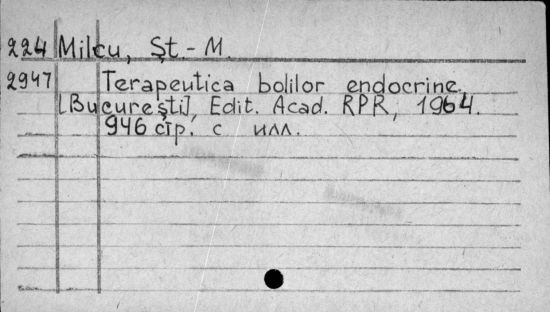 224 Milcu, Șt.-M.
2947 Terapeutica bolilor endocrine.
[București], Edit. Acad. RPR, 1964.
946 стр. с илл.